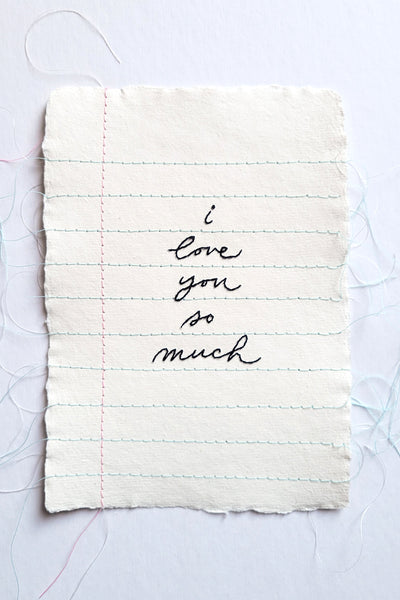 i
love
you
so
much